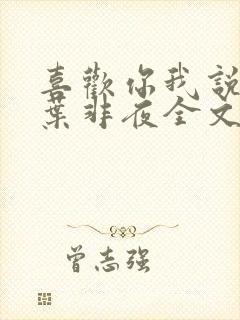 喜歡你我說
葉非夜全文
曾志强